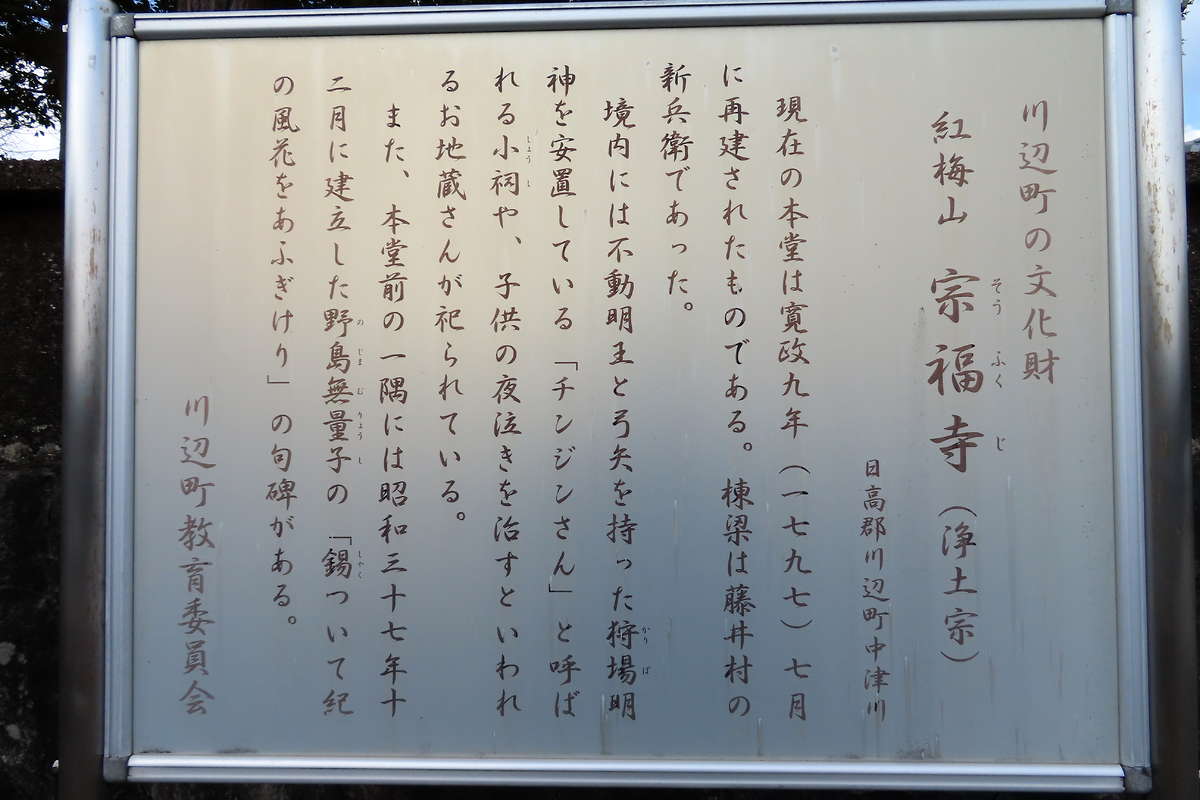 川辺町の文化財
紅梅山 宗福寺(浄土宗)
そうふくじ
日高郡川辺町中津川
現在の本堂は寛政九年(一七九七)七月
に再建されたものである。棟梁は藤井村の
新兵衛であった。
境内には不動明王と弓矢を持った狩場明
かりば
神を安置している「チンジンさん」と呼ば
れる小祠や、子供の夜泣きを治すといわれ
しょうし
るお地蔵さんが祀られている。
また、本堂前の一隅には昭和三十七年十
二月に建立した野島無量子の「錫ついて紀
のじまむりょうし
しゃく
の風花をあふぎけり」の句碑がある。
川辺町教育委員会